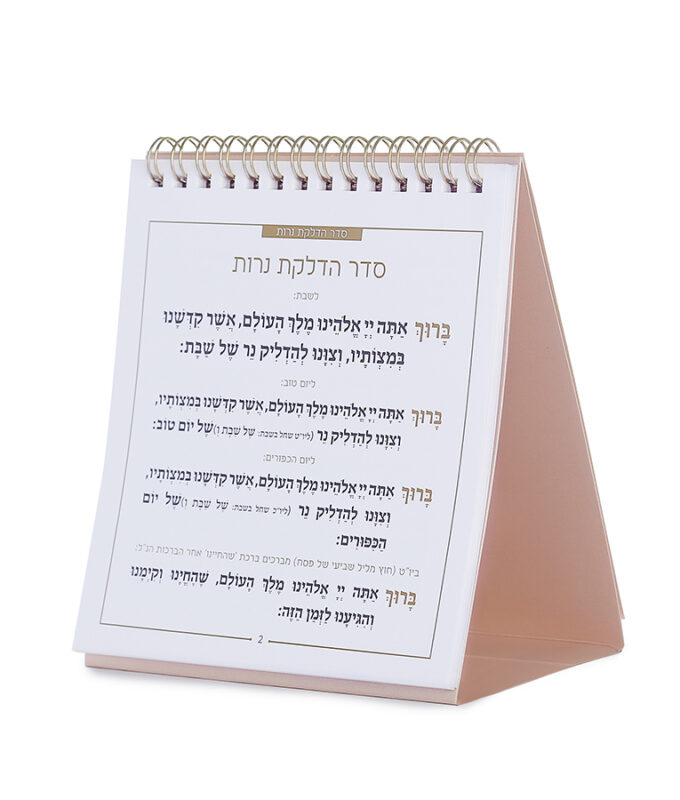 סדר הדלקת נרות
סדר הדלקת נרות
לשבת:
בָּרוּךְ אַתָּה יְיָ אֱלֹהֵינוּ מֶלֶךְ הָעוֹלָם, אֲשֶׁר קִדְּשָׁנוּ
בְּמִצְוֹתָיו, וְצִוָּנוּ לְהַדְלִיק נֵר שֶׁל שַׁבָּת:
ליום טוב:
בָּרוּךְ אַתָּה יְיָ אֱלֹהֵינוּ מֶלֶךְ הָעוֹלָם, אֲשֶׁר קִדְּשָׁנוּ בְּמִצְוֹתָיו,
וְצִוָּנוּ לְהַדְלִיק נֵר (ליו״ט שחל בשבת: שֶׁל שַׁבָּת וְ) שֶׁל יוֹם טוֹב:
ליום הכפורים:
בָּרוּךְ אַתָּה יְיָ אֱלֹהֵינוּ מֶלֶךְ הָעוֹלָם, אֲשֶׁר קִדְּשָׁנוּ בְּמִצְוֹתָיו,
וְצִוָּנוּ לְהַדְלִיק נֵר (ליו״כ שחל בשבת: שֶׁל שַׁבָּת וְ) שֶׁל יוֹם
הַכִּפּוּרִים:
ביו״ט (חוץ מליל שביעי של פסח) מברכים ברכת 'שהחיינו' אחר הברכות הנ״ל:
בָּרוּךְ אַתָּה יְיָ אֱלֹהֵינוּ מֶלֶךְ הָעוֹלָם, שֶׁהֶחֱיָנוּ וְקִיְּמָנוּ
וְהִגִּיעָנוּ לַזְּמַן הַזֶּה:
2